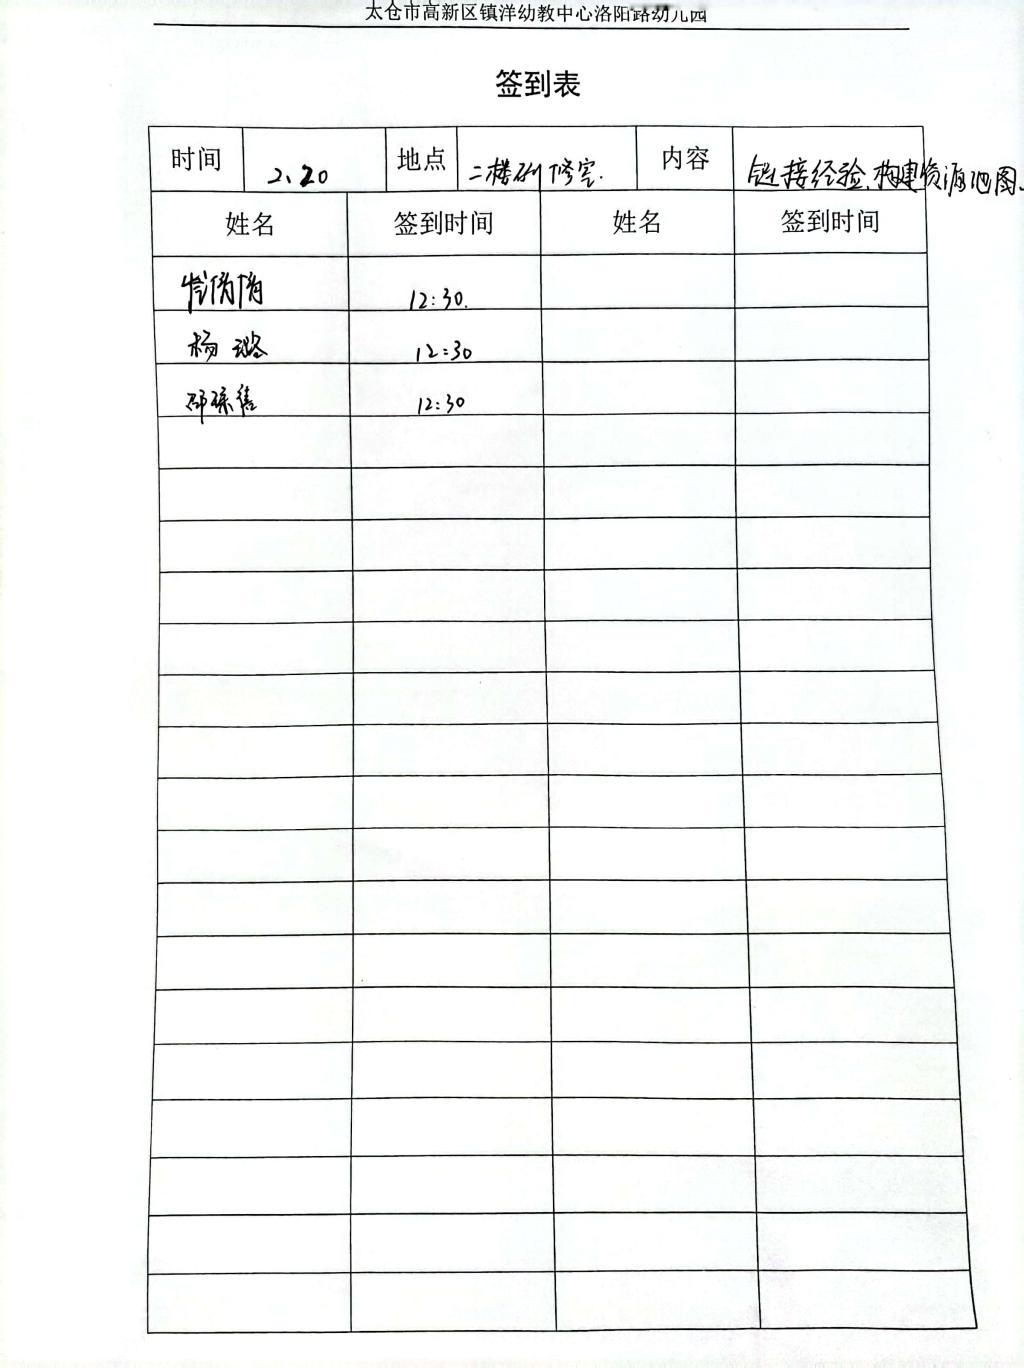 太仓市高新区镇洋幼教中心洛阳路幼儿园
签到表
时间 2.20 地点 二楼研修室. 内容 链接经验,构建资源地图.
姓名 签到时间 姓名 签到时间
12:30.
杨璐 12:30
邵 12:30